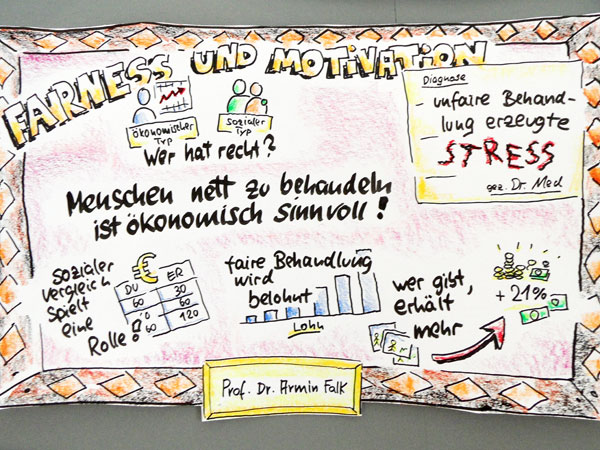 FAIRNESS UND MOTIVATION
ökonomischer
Typ
sozialer
Typ
Wer hat recht?
Diagnose
unfaire Behand-
lung erzeugte
STRESS
gez. Dr. Med
Menschen nett zu behandeln
ist ökonomisch sinnvoll!
sozialer
Vergleich
spielt
eine
Rolle!
€
DU ER
60 30
60 60
60 120
faire Behandlung
wird
belohnt
Lohn
wer gibt,
erhält
mehr
+ 21%
Prof. Dr. Armin Falk